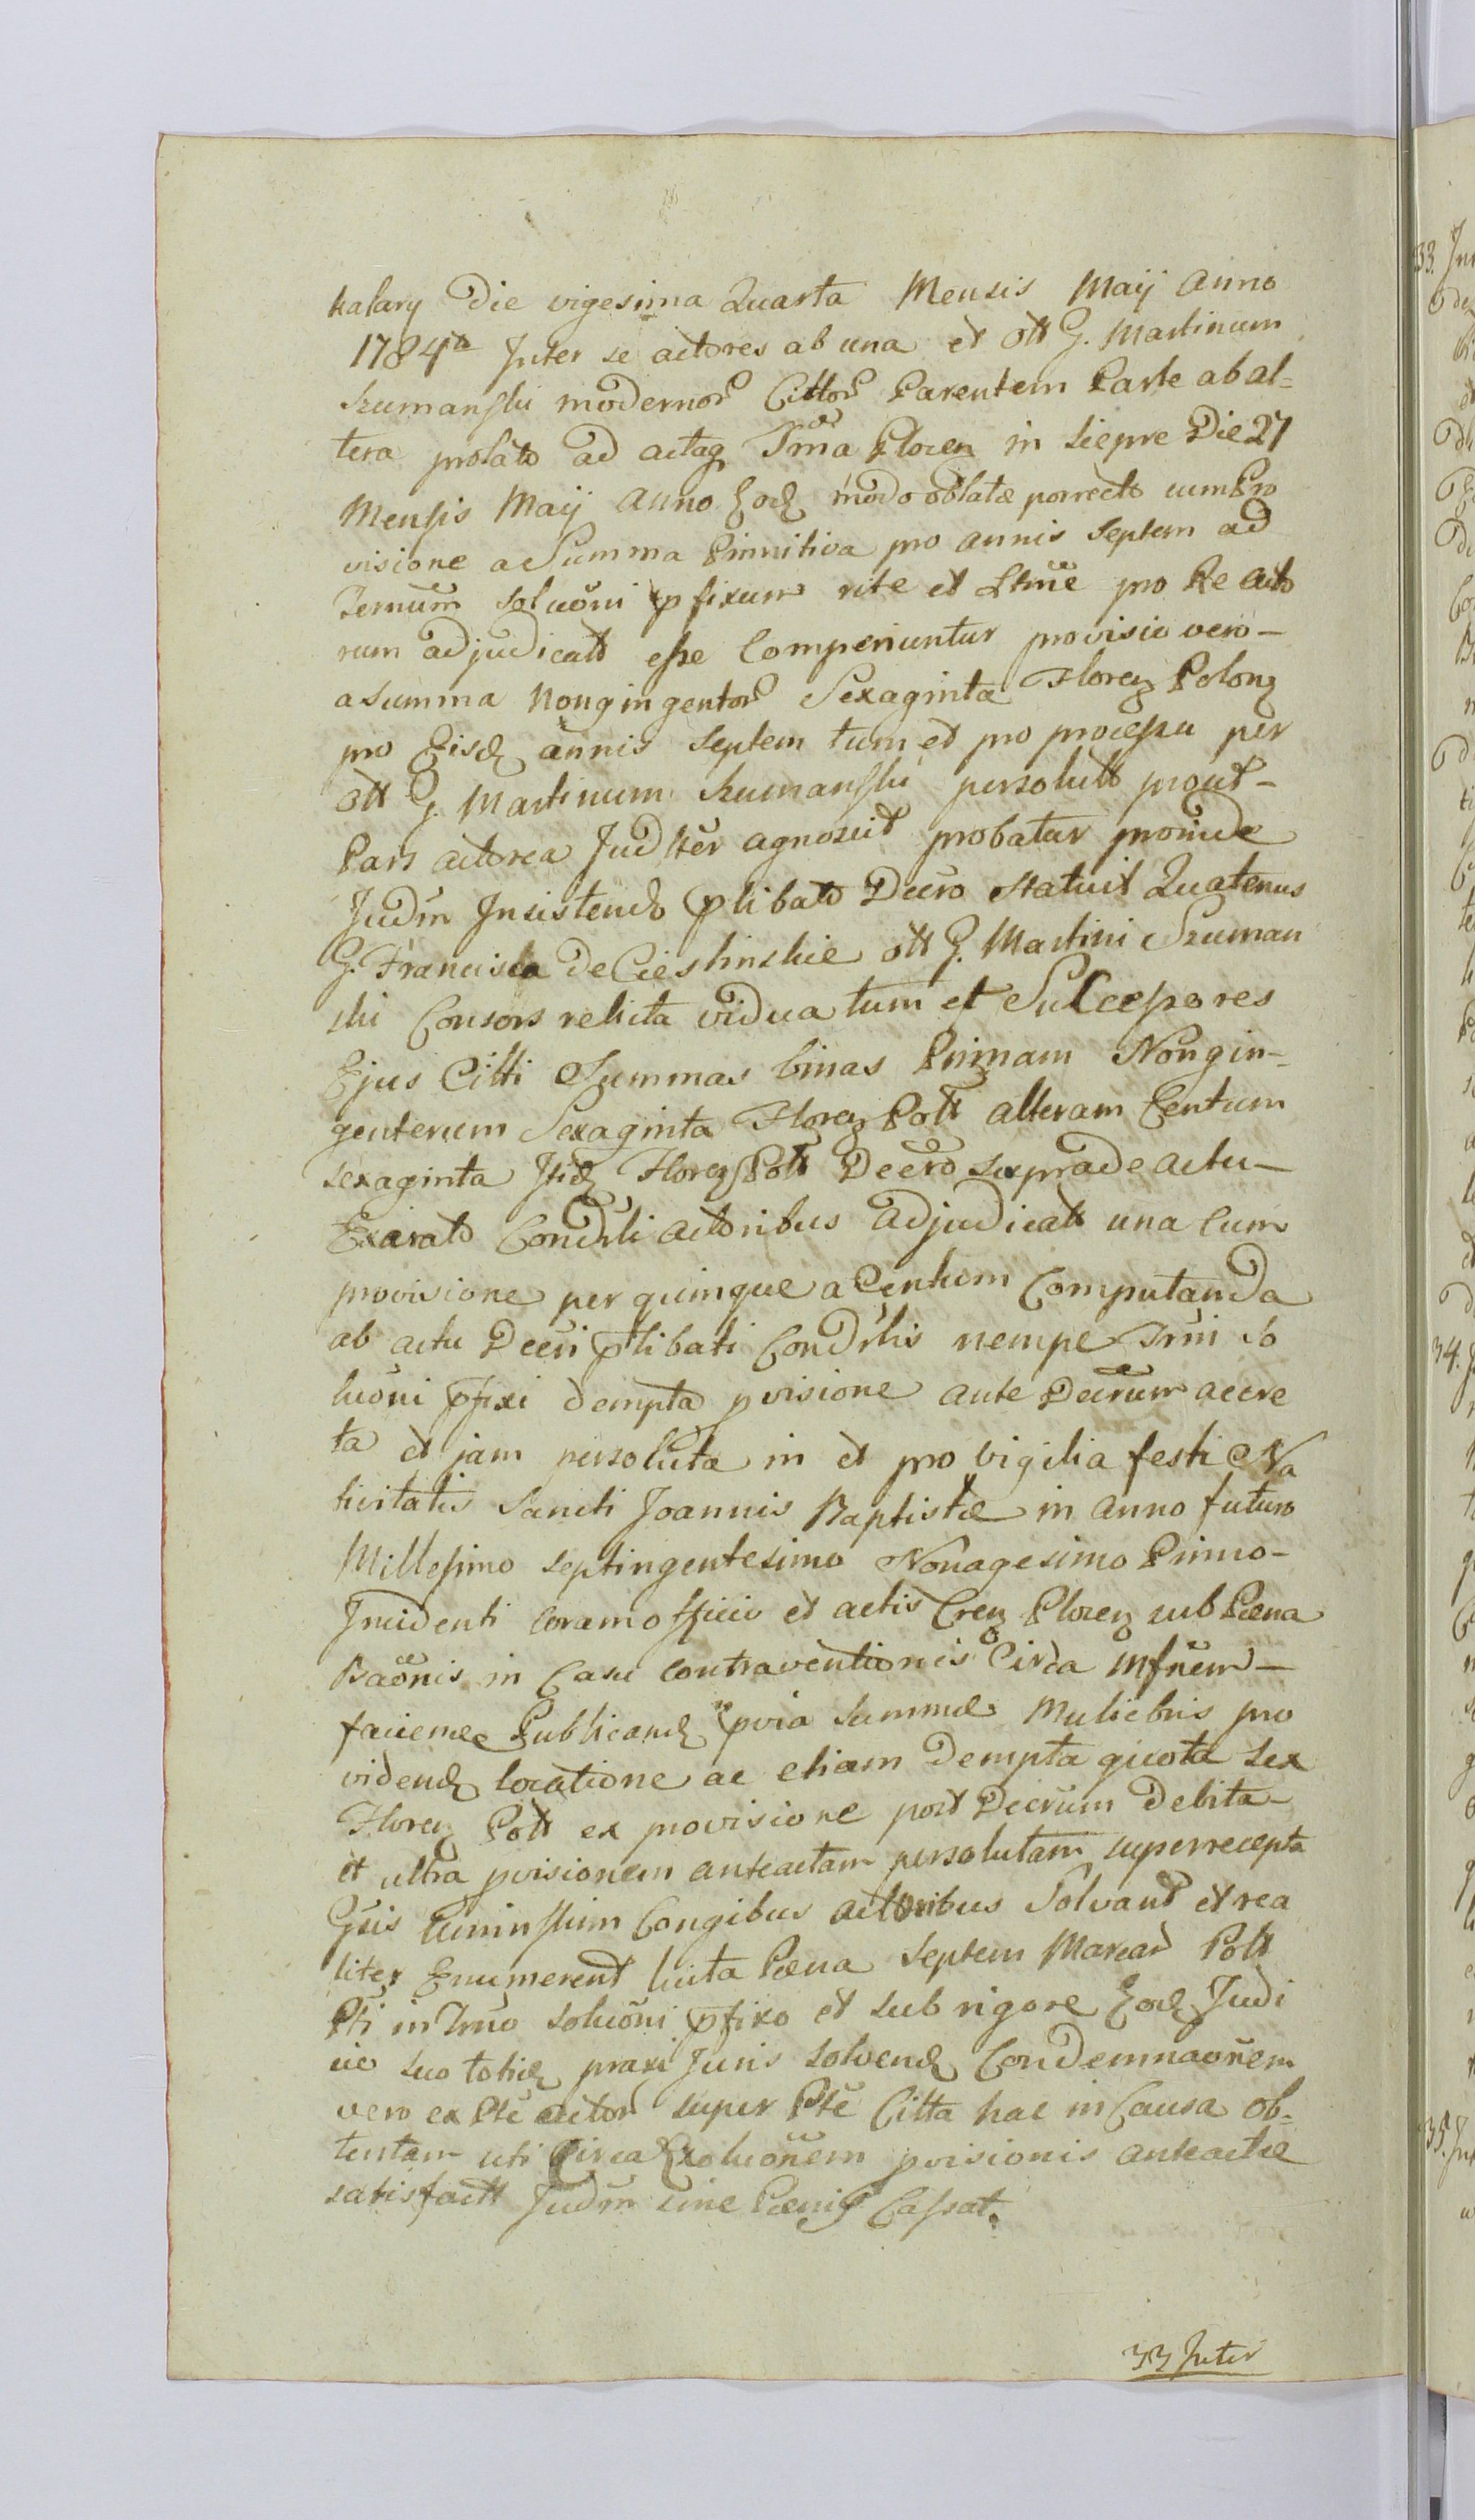 kalary Die vigesima Quarta Mensis Maij Anno
1784to Inter se actores ab una et Ott G. Martinum
Szumanski modernor Cittor Parentem Parte ab al=
tera prolato ad actaq Trma Plocen in Sierpc Die 27
Mensis Maij Anno Eod modo oblatæ porrecto cum Pro
visione a Summa Primitiva pro annis Septem ad
Termum Soluõni p fixum rite et Ltme pro Re Acto
rum adjudicatt esse Comperiuntur provisio vero –
a Summa Nongingentor Sexaginta Floren Polon
pro Eisd annis Septem tum et pro processu per
Ott G. Martinum Szumanski persolutt prout –
Pars actorea Judlter agnoscit probatur proinde
Judm Insistendo plibato Decro statuit Quatenus
G. Francisca De Cieslinskie ott G. Martini Szuman
ski Consors relicta vidua tum et Successores
Ejus Citti Summas binas Primam Nongin–
gentorum Sexaginta Floren Poll alteram Centum
sexaginta Itid Floren Poll Decro supra de actu –
Exarato Condrli actoribus Adjudicatt una cum
provisione per quinque a Centum Computanda
ab actu Decri plibati Condrlis nempe Trmi So
luõni pfixi dempta pvisione ante Decrum accre
ta et jam persoluta in et pro vigilia festi Na
tivitatis Sancti Joannis Baptistæ in anno futuro
Millesimo septingentesimo Nonagesimo Primo –
Incidenti coram officio et actis Cren Plocen sub Pæna
Baõnis in Casu contraventionis Circa Infnem –
faciem Publicand pvia Summæ Muliebris pro
vidend locatione ac etiam Dempta quota Sex
Floren Poll ex provisione post Decrum Debita –
et ultra pvisionem anteactam persolutam superrecepta
Gsis Conjgibus actoribus Solvant et rea
liter Enumerent luita Pæna Septem Marcar Poll
Pti in Trmo soluõni pfixo et sub rigore Eod Judi
cio suo totid praxi Juris solvend Condemnaõnem
vero ex Pte actor super Pte Citta hac in Causa ob=
tentam uti Circa Exoluõnem pvisionis anteactæ
satisfactt Judm sine Pænis Cassat.
33 Inter